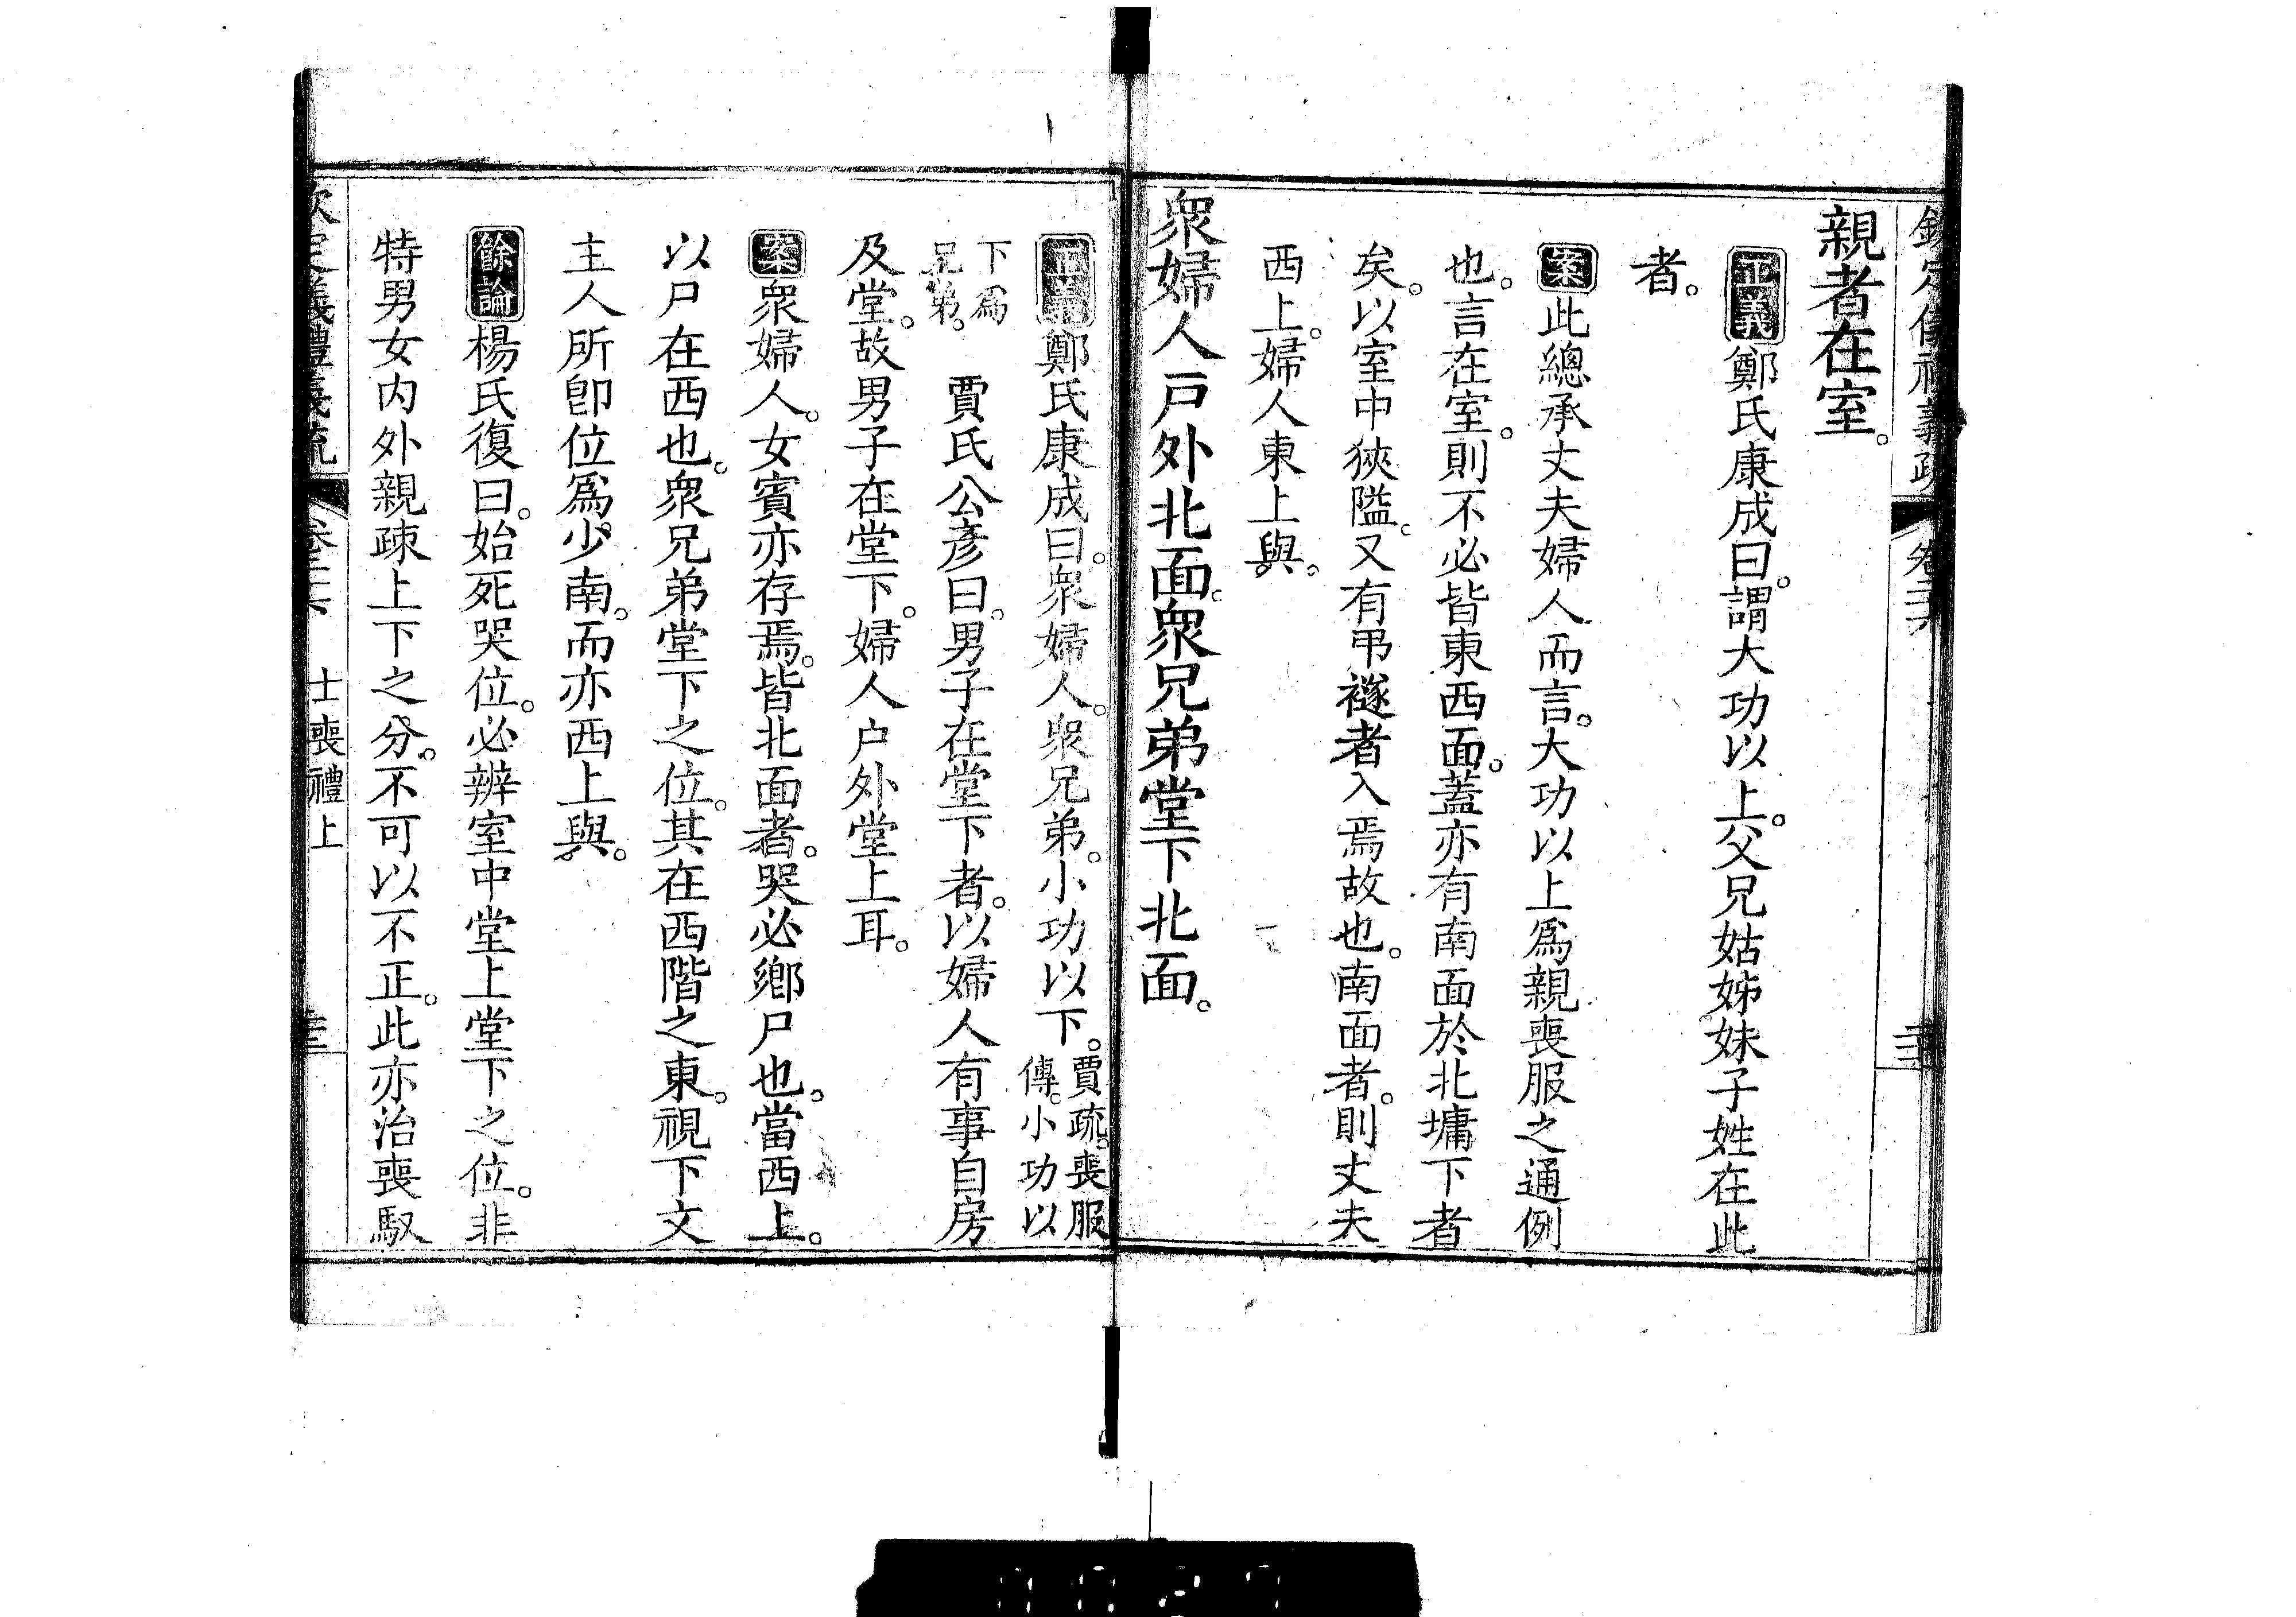 親者在室。
正義鄭氏康成曰。謂大功以上。父兄姑姊妹子姓在此
者。
案此總承丈夫婦人而言。大功以上爲親喪服之通例
也。言在室。則不必皆東西面。蓋亦有南面於北墉下者
矣。以室中狹隘。又有弔襚者入焉故也。南面者。則丈夫
西上。婦人東上與。
衆婦人戶外北面。衆兄弟堂下北面。
正義鄭氏康成曰。衆婦人。衆兄弟。小功以下。賈疏。喪服
傳。小功以
下爲
兄弟。賈氏公彥曰。男子在堂下者。以婦人有事自房
及堂。故男子在堂下。婦人户外堂上耳。
案衆婦人。女賓亦存焉。皆北面者。哭必鄉尸也。當西上。
以尸在西也。衆兄弟堂下之位。其在西階之東。視下文
主人所卽位爲少南。而亦西上與。
餘論楊氏復曰。始死哭位。必辨室中堂上堂下之位。非
特男女内外親疎上下之分。不可以不正。此亦治喪馭
士喪禮上